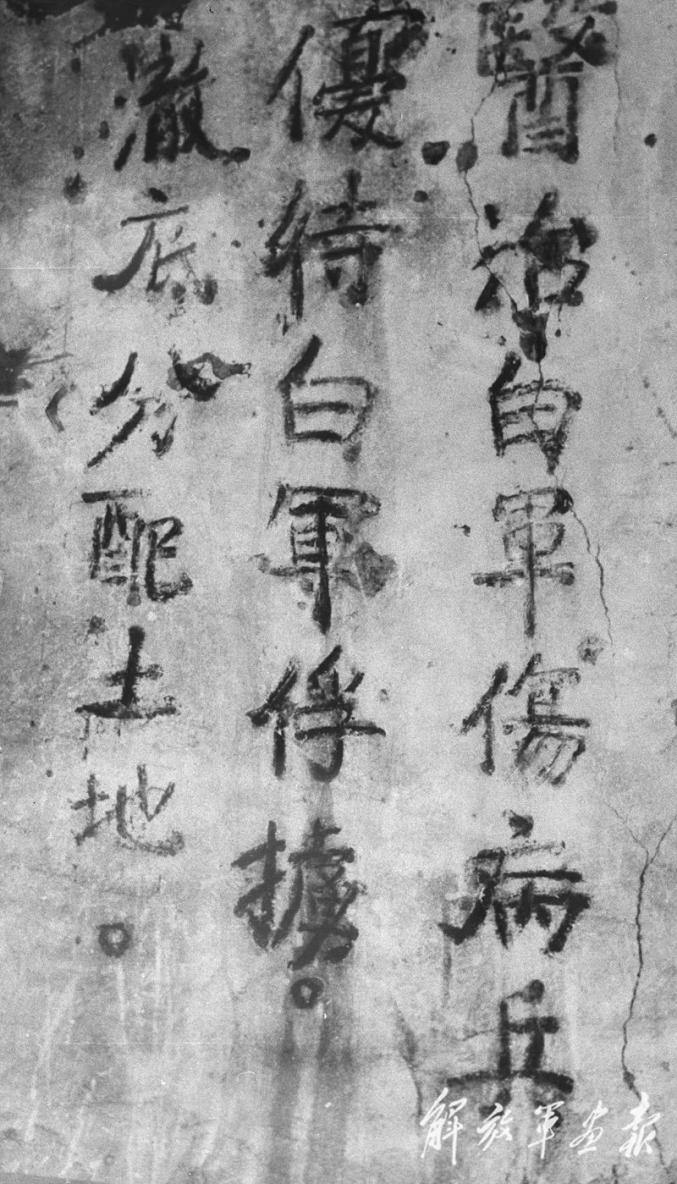 醫治白軍傷病兵
優待白軍俘擄。
澈底分配土地。
解放軍画报